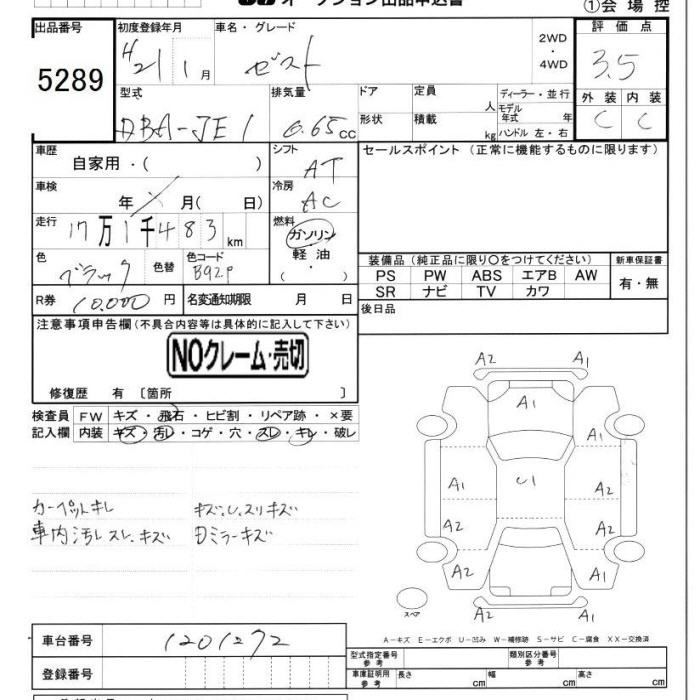 オークション出品申込書
①会場控
出品番号 5289
初度登録年月 H21 1月
車名・グレード ゼスト
2WD・4WD
評価点 3.5
外装 C 内装 C
型式 DBA-JE1
排気量 0.65cc
ドア 形状
定員 人
積載 kg
ディーラー・並行
モデル年式 年
ハンドル 左・右
車歴 自家用・( )
シフト AT
セールスポイント (正常に機能するものに限ります)
車検 年 月( 日)
冷房 AC
走行 17万1千483km
燃料 ガソリン・軽油・( )
色 ブラック 色替
色コード B92P
装備品 (純正品に限り○をつけてください)
新車保証書 有・無
PS PW ABS エアB AW
SR ナビ TV カワ
R券 10,000円
名変通知期限 月 日
後日品
注意事項申告欄(不具合内容等は具体的に記入して下さい)
NOクレーム・売切
修復歴 有 〔箇所 〕
検査員記入欄
FW キズ・飛石・ヒビ割・リペア跡・×要
内装 キズ・汚レ・コゲ・穴・スレ・キレ・破レ
カーペットキレ
車内汚レスレ、キズ
キズ、U、スリキズ
Dミラーキズ
A2 A1
A1
A1
A1 U1 A2
A2 A2
A2 A1
A2 A1
スペア
A-キズ E-エクボ U-凹み W-補修跡 S-サビ C-腐食 XX-交換済
車台番号 1201272
型式指定番号 参考
類別区分番号 参考
登録番号
車庫証明用 参考 長さ cm 幅 cm 高さ cm